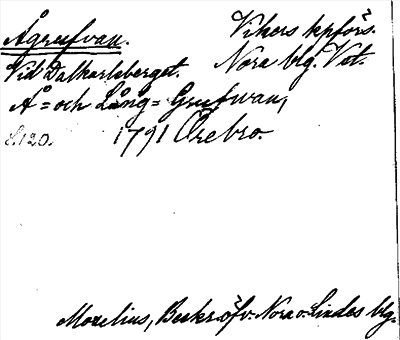 Ågrufvan. Vikers kpförs.
Vid Dalkarlsberget. Nora blg. Vst.
Å= och Lång= Grufwan,
S.120. 1791 Örebro.
Morelius, Beskr. öfv. Nora o. Lindes blg.